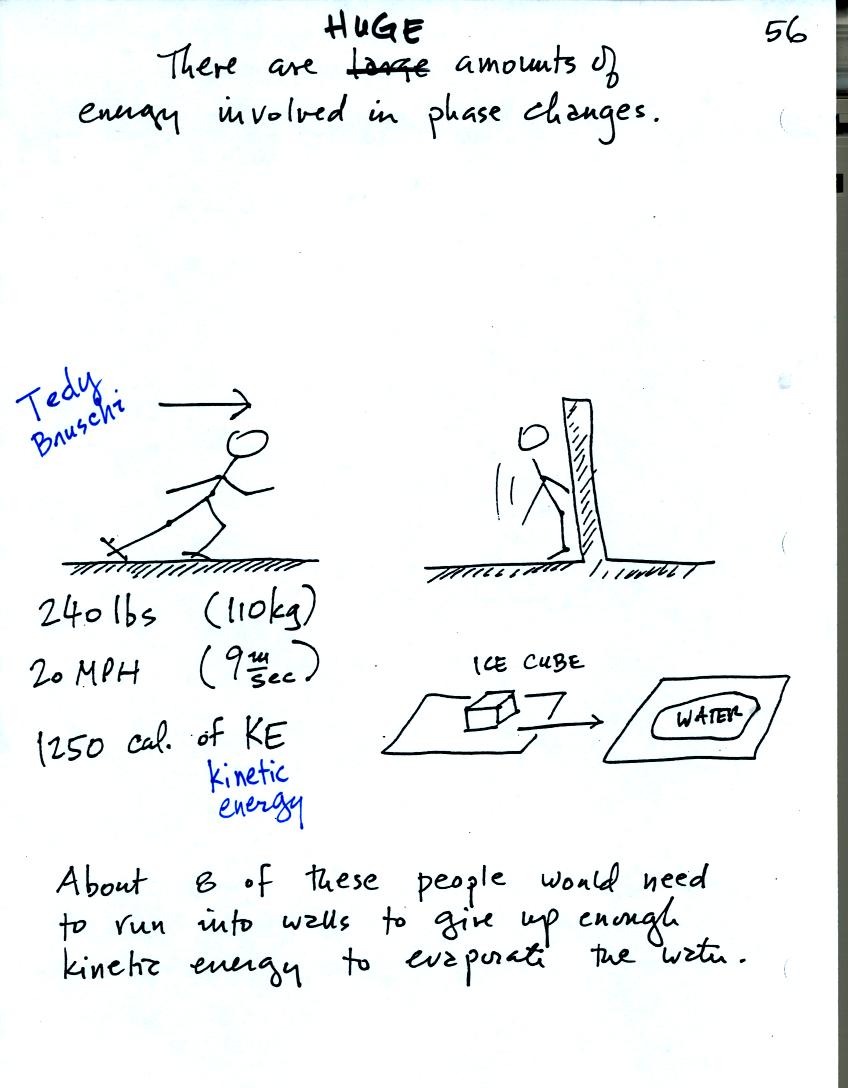 56
HUGE
There are large amounts of
energy involved in phase changes.
Tedy
Bruschi
240 lbs (110kg)
20 MPH (9 m/sec)
1250 cal. of KE
kinetic
energy
ICE CUBE
WATER
About 8 of these people would need
to run into walls to give up enough
kinetic energy to evaporate the water.